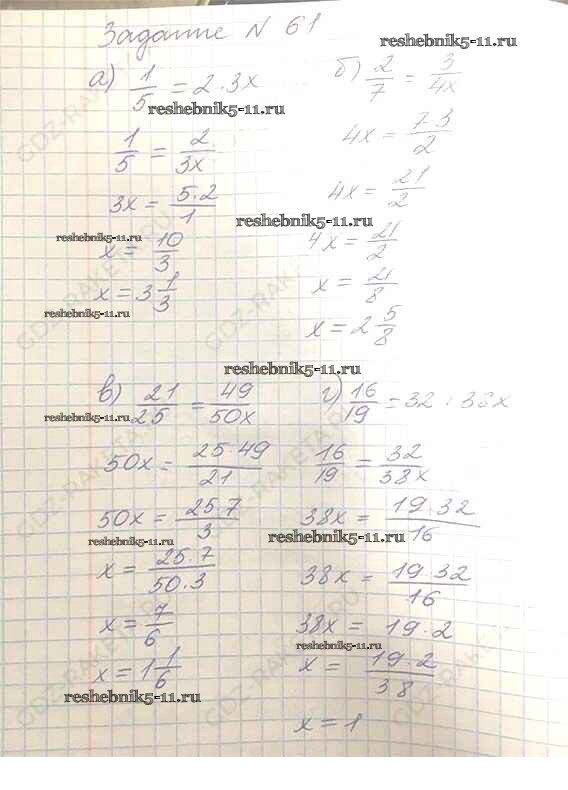 Задание N 61
reshebnik5-11.ru
а) 1/5 = 2·3x
reshebnik5-11.ru
1/5 = 2/3x
3x = 5·2/1
reshebnik5-11.ru
x = 10/3
x = 3 1/3
reshebnik5-11.ru
б) 2/7 = 3/4x
4x = 7·3/2
4x = 21/2
reshebnik5-11.ru
4x = 21/2
x = 21/8
x = 2 5/8
reshebnik5-11.ru
в) 21/25 = 49/50x
50x = 25·49/21
50x = 25·7/3
reshebnik5-11.ru
x = 25·7/50·3
x = 7/6
x = 1 1/6
reshebnik5-11.ru
г) 16/19 = 32 : 38x
16/19 = 32/38x
38x = 19·32/16
reshebnik5-11.ru
38x = 19·32/16
38x = 19·2
reshebnik5-11.ru
x = 19·2/38
x = 1
GDZ-RAKETA.RU